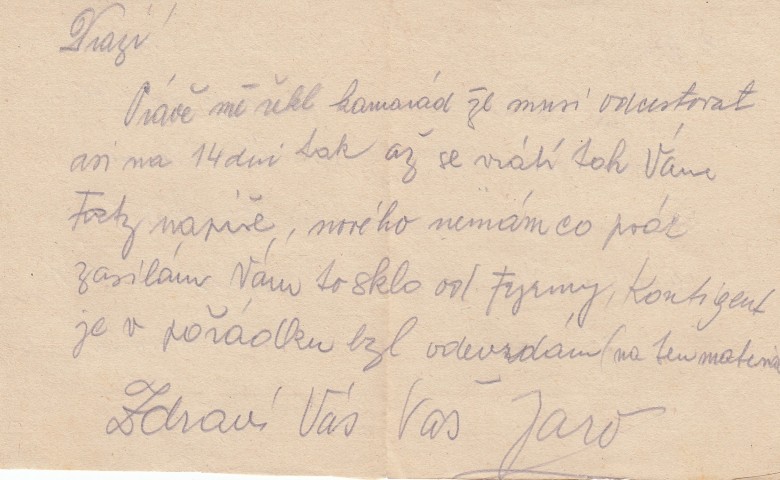 Drazí!
Právě mě řekl kamarád že musí odcestovat
asi na 14 dní tak až se vrátí tak Vám
napíše, nového nemám co psát
zasílám Vám to sklo od Fyrmy, Kontigent
je v pořádku byl odevzdám (na ten materiál
Zdraví Vás Váš Jaro